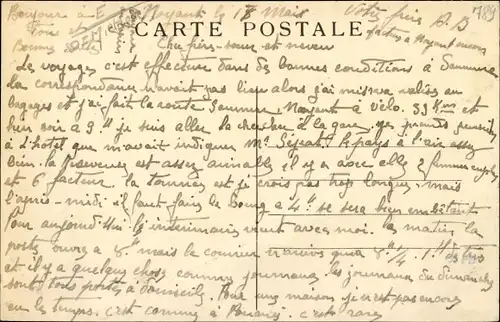 Bonjour à
Tous et
Bonne
Noyant le 18 Mai
Votre frère A B
factes à Noyant encore
789
CARTE POSTALE
Cher frère sœur et neveu
le voyage c'est effectuer dans de bonnes conditions à Saumur
la correspondance n'avait pas lieu alors j'ai mis ma valise au
bagages et j'ai fait la route Saumur Noyant à Vélo. 33 Km et
hier soir a 9h je suis aller la chercher à la gare. je prends pension
à l'hotel que m'avait indiquer Mr le pays à l'air assez
bien. la receveuse est assez aimable il y a avec elle 2
et 6 facteur. la tournée est je crois pas trop longue. mais
l'après-midi il faut faire le bourg a 4h se sera bien embêtant
Pour aujourd'hui l'intérimaire vient avec moi. le matin la
poste ouvre a 8h mais le courrier n'arrive qua 8h 1/4.
et il y a quelque chose comme journaux. les journaux du dimanche
sont tous portés à domicile. Pour une maison je n'est pas encore
eu le temps. c'est comme à c'est rare